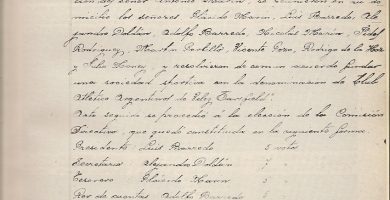 se reunieron en su do
micilio los señores, Plácido Marin, Luis Barredo, Ale
jandro Doldán, Adolfo Barredo, Nicolás Marin, Fidel
Rodriguez, Martin Portillo, Vicente Pozo, Rodrigo de la Hoz
y Julio Honey, y resolvieron de comun acuerdo fundar
una sociedad sportiva con la denominacion de "Club
Atletico Argentinos de Velez Sarsfield".
Acto seguido se procedió a la eleccion de la Comision
Directiva, que quedó constituida en la siguiente forma:
Presidente Luis Barredo 5 votos
Secretario Alejandro Doldán 7 "
Tesorero Plácido Marin
Rev. de cuentas Adolfo Barredo